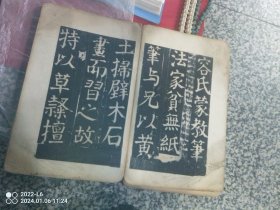 容氏蒙教筆
法家貧無紙
筆与兄以黄
土掃壁木石
畫而習之故
特以草隸擅
2022-L6
2024.01.06 11:24